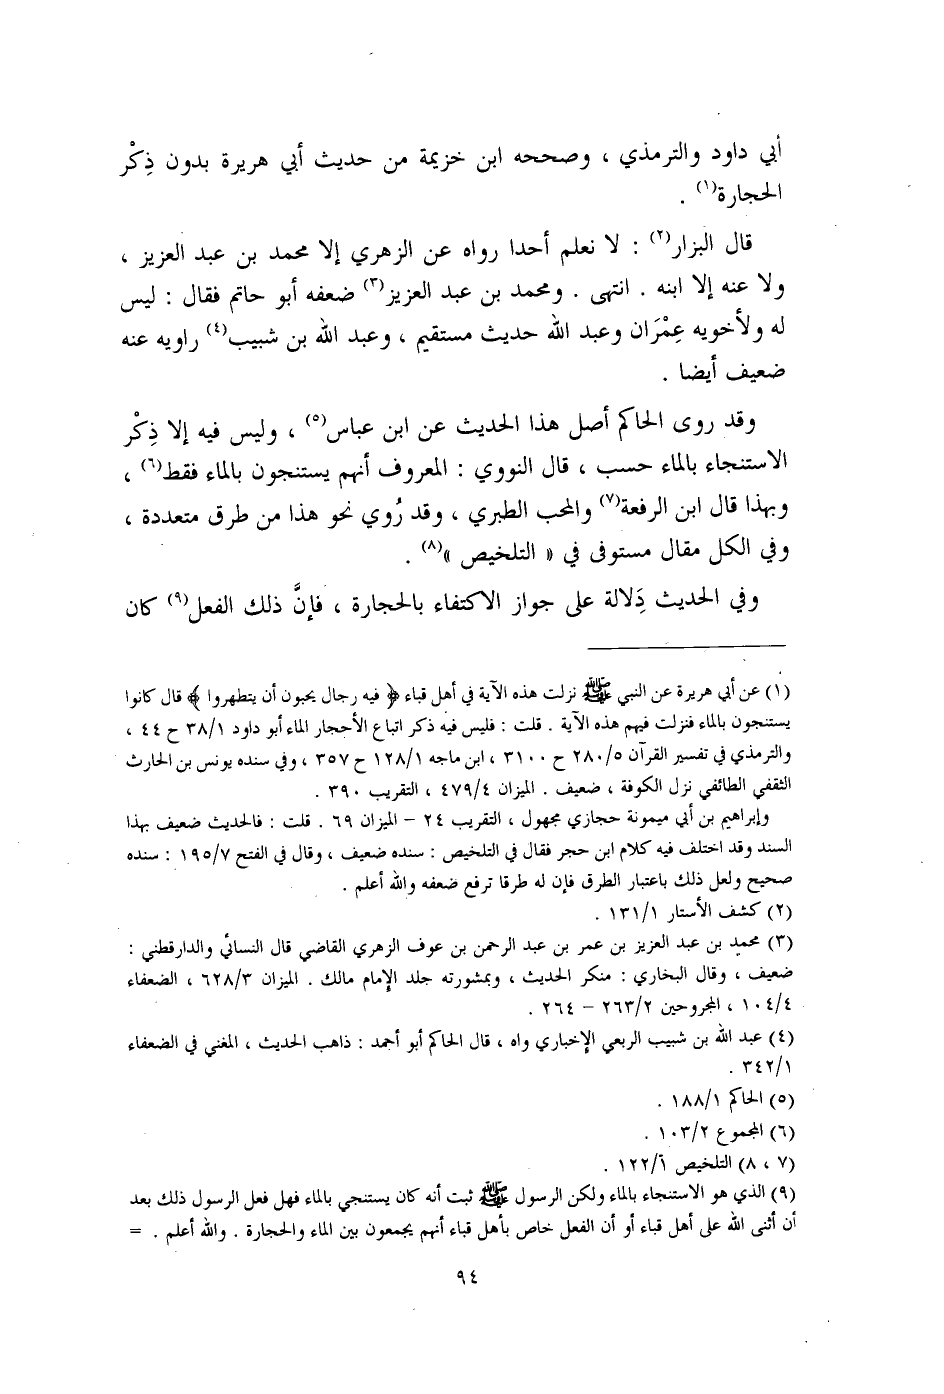 أبي داود والترمذي ، وصححه ابن خزيمة من حديث أبي هريرة بدون ذِكْر
الحجارة(١) .
قال البزار(٢) : لا نعلم أحدا رواه عن الزهري إلا محمد بن عبد العزيز ،
ولا عنه إلا ابنه . انتهى . ومحمد بن عبد العزيز(٣) ضعفه أبو حاتم فقال : ليس
له ولأخويه عِمْرَان وعبد الله حديث مستقيم ، وعبد الله بن شبيب(٤) راويه عنه
ضعيف أيضا .
وقد روى الحاكم أصل هذا الحديث عن ابن عباس(٥) ، وليس فيه إلا ذِكْر
الاستنجاء بالماء حسب ، قال النووي : المعروف أنهم يستنجون بالماء فقط(٦) ،
وبهذا قال ابن الرفعة(٧) والمحب الطبري ، وقد رُوي نحو هذا من طرق متعددة ،
وفي الكل مقال مستوفى في « التلخيص »(٨) .
وفي الحديث دِلالة على جواز الاكتفاء بالحجارة ، فإنَّ ذلك الفعل(٩) كان
(١) عن أبي هريرة عن النبي ﷺ نزلت هذه الآية في أهل قباء ﴿ فيه رجال يحبون أن يتطهروا ﴾ قال كانوا
يستنجون بالماء فنزلت فيهم هذه الآية . قلت : فليس فيه ذكر اتباع الأحجار الماء أبو داود ٣٨/١ ح ٤٤ ،
والترمذي في تفسير القرآن ٢٨٠/٥ ح ٣١٠٠ ، ابن ماجه ١٢٨/١ ح ٣٥٧ ، وفي سنده يونس بن الحارث
الثقفي الطائفي نزل الكوفة ، ضعيف . الميزان ٤٧٩/٤ ، التقريب ٣٩٠ .
وإبراهيم بن أبي ميمونة حجازي مجهول ، التقريب ٢٤ – الميزان ٦٩ . قلت : فالحديث ضعيف بهذا
السند وقد اختلف فيه كلام ابن حجر فقال في التلخيص : سنده ضعيف ، وقال في الفتح ١٩٥/٧ : سنده
صحيح ولعل ذلك باعتبار الطرق فإن له طرقا ترفع ضعفه والله أعلم .
(٢) كشف الأستار ١٣١/١ .
(٣) محمد بن عبد العزيز بن عمر بن عبد الرحمن بن عوف الزهري القاضي قال النسائي والدارقطني :
ضعيف ، وقال البخاري : منكر الحديث ، وبمشورته جلد الإمام مالك . الميزان ٦٢٨/٣ ، الضعفاء
١٠٤/٤ ، المجروحين ٢٦٣/٢ – ٢٦٤ .
(٤) عبد الله بن شبيب الربعي الإخباري واه ، قال الحاكم أبو أحمد : ذاهب الحديث ، المغني في الضعفاء
٣٤٢/١ .
(٥) الحاكم ١٨٨/١ .
(٦) المجموع ١٠٣/٢ .
(٧ ، ٨) التلخيص ١٢٢/١ .
(٩) الذي هو الاستنجاء بالماء ولكن الرسول ﷺ ثبت أنه كان يستنجي بالماء فهل فعل الرسول ذلك بعد
أن أثنى الله على أهل قباء أو أن الفعل خاص بأهل قباء أنهم يجمعون بين الماء والحجارة . والله أعلم . =
٩٤